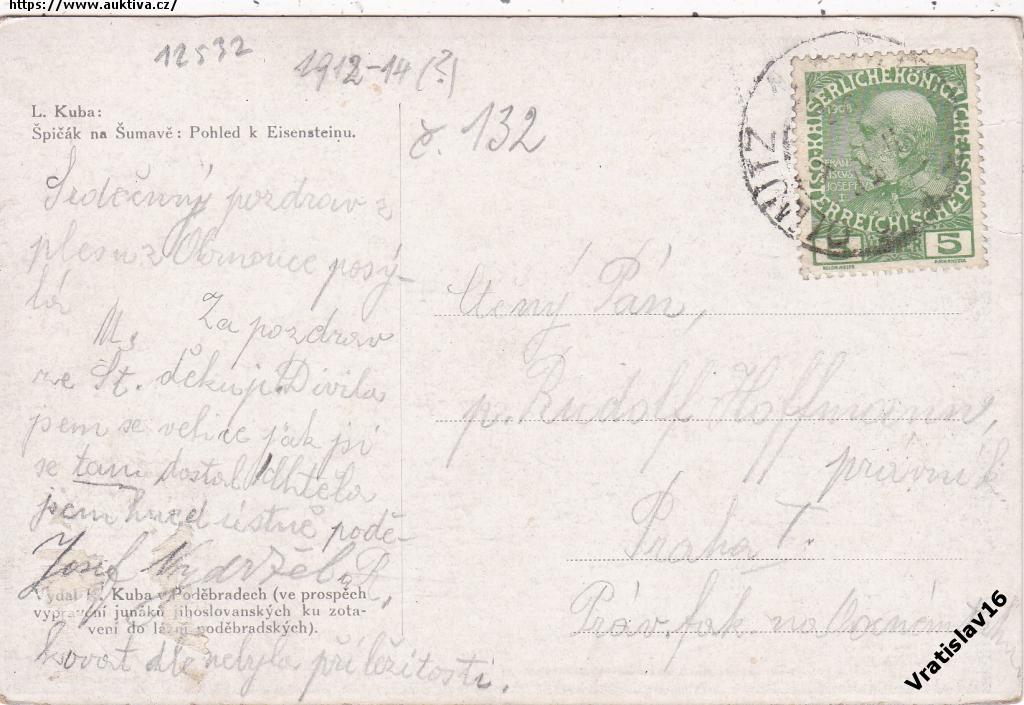 https://www.auktiva.cz/
12532
1912-14(?)
č. 132
L. Kuba:
Špičák na Šumavě: Pohled k Eisensteinu.
Srdečný pozdrav z
plesu z Olomouce posý-
lá
M. Za pozdrav
ze St. děkuji. Divila
jsem se velice jak jsi
se tam dostal. Chtěla
jsem hned ústně podě-
Josef Vydržel
kovat ale nebyla příležitost.
Vydal K. Kuba v Poděbradech (ve prospěch
vypravení junáků jihoslovanských ku zota-
vení do lázní poděbradských).
KAISERLICHE KÖNIGLICHE
ÖSTERREICHISCHE POST
1908
FRANZ
JOSEF I
5 5
OLMÜTZ
Ctěný Pán,
p. Rudolf Hoffmann,
právník
Praha I.
Práv. fak. na Ovocném trhu
Vratislav16